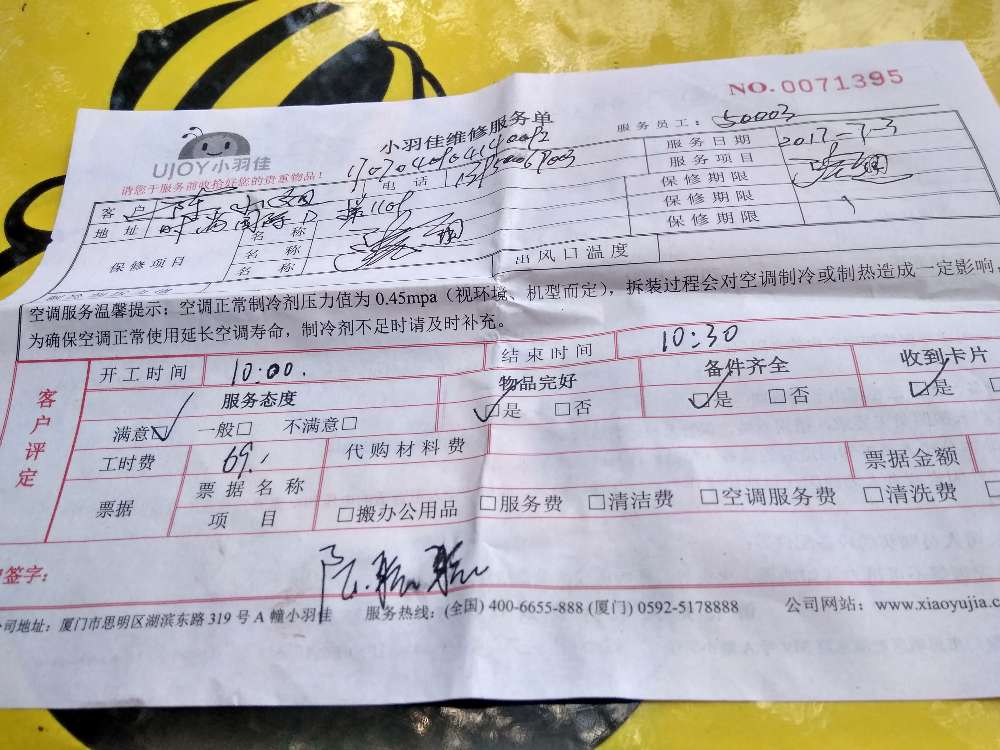 NO. 0071395
UJOY小羽佳
小羽佳维修服务单
服务员工: 50003
请您于服务前收拾好您的贵重物品!
服务日期 2017-7-3
客户 电话 服务项目
地址 时尚国际 1101 保修期限
保修项目 名称 保修期限
名称 保修期限
名称 出风口温度
空调服务温馨提示:空调正常制冷剂压力值为0.45mpa(视环境、机型而定),拆装过程会对空调制冷或制热造成一定影响,
为确保空调正常使用延长空调寿命,制冷剂不足时请及时补充。
客户评定
开工时间 10:00. 结束时间 10:30
服务态度 物品完好 备件齐全 收到卡片
满意☑ 一般□ 不满意□ ☑是 □否 ☑是 □否 ☑是
工时费 69. 代购材料费 票据金额
票据 票据名称
项目 □搬办公用品 □服务费 □清洁费 □空调服务费 □清洗费
签字:
公司地址:厦门市思明区湖滨东路319号A幢小羽佳 服务热线:(全国) 400-6655-888 (厦门) 0592-5178888 公司网站:www.xiaoyujia.c